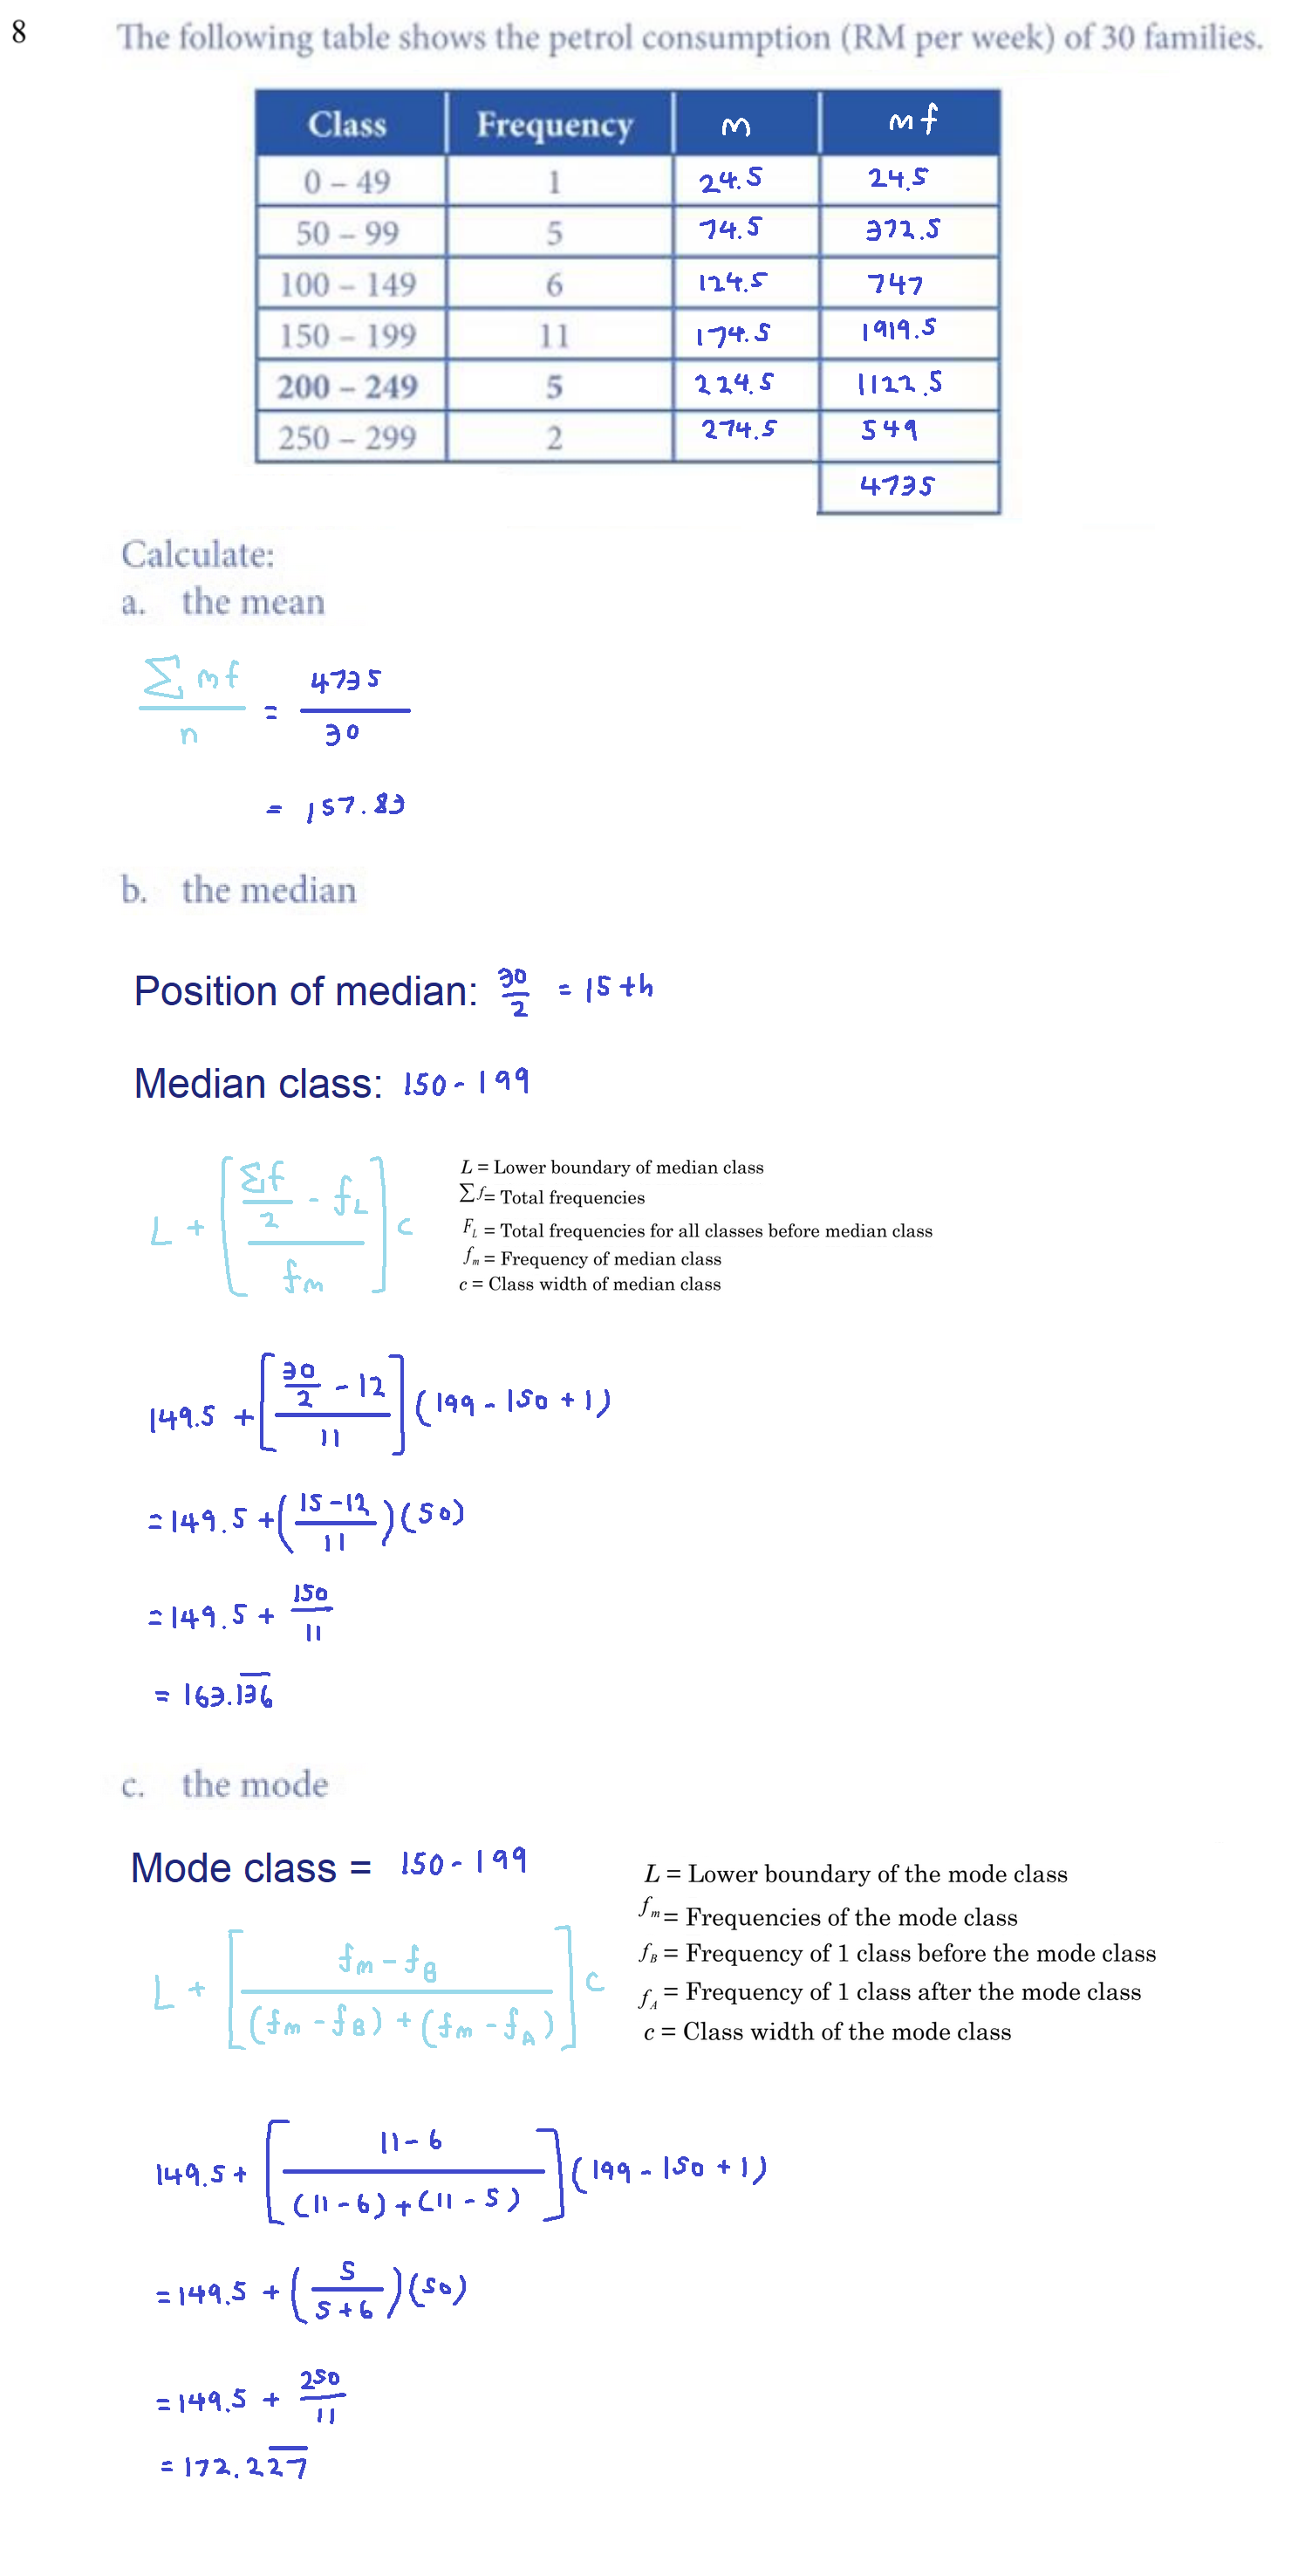 8 The following table shows the petrol consumption (RM per week) of 30 families.
Class Frequency m mf
0 – 49 1 24.5 24.5
50 – 99 5 74.5 372.5
100 – 149 6 124.5 747
150 – 199 11 174.5 1919.5
200 – 249 5 224.5 1122.5
250 – 299 2 274.5 549
4735
Calculate:
a. the mean
∑mf / n = 4735 / 30
= 157.83
b. the median
Position of median: 30/2 = 15th
Median class: 150 - 199
L + [(∑f/2 - f_L) / f_m] c
L = Lower boundary of median class
∑f = Total frequencies
F_L = Total frequencies for all classes before median class
f_m = Frequency of median class
c = Class width of median class
149.5 + [(30/2 - 12) / 11] (199 - 150 + 1)
= 149.5 + ((15 - 12) / 11)(50)
= 149.5 + 150/11
= 163.1̅3̅6̅
c. the mode
Mode class = 150 - 199
L + [(f_m - f_B) / ((f_m - f_B) + (f_m - f_A))] c
L = Lower boundary of the mode class
f_m = Frequencies of the mode class
f_B = Frequency of 1 class before the mode class
f_A = Frequency of 1 class after the mode class
c = Class width of the mode class
149.5 + [(11 - 6) / ((11 - 6) + (11 - 5))] (199 - 150 + 1)
= 149.5 + (5 / (5 + 6))(50)
= 149.5 + 250/11
= 172.22̅7̅